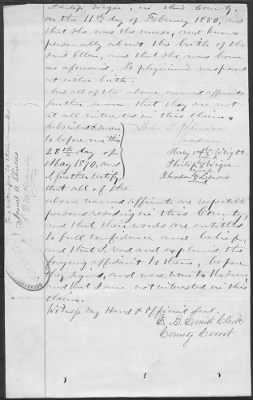 Philip Wiger, in this County,
on the 11th day of February 1850, and
that she was the nurse, and been
personally about the birth of the
said Ellen, and that she was born
as aforesaid. No physician was present
at either birth.
And all of the above named affiants
further swear that they are not
at all interested in this claim.
Subscribed & sworn
to before me this
day of
May 1870, and
Philip Wiger
I further certify
Rhoda Lewis
that all of the
above named affiants are respectable
persons residing in this County,
and that their words are entitled
to full confidence and belief,
and that I read and explained the
foregoing affidavit to them, before
they signed, and were sworn to the same,
and that I am not interested in this
claim.
Witness my Hand & Official seal.
Smith Clerk
County Court